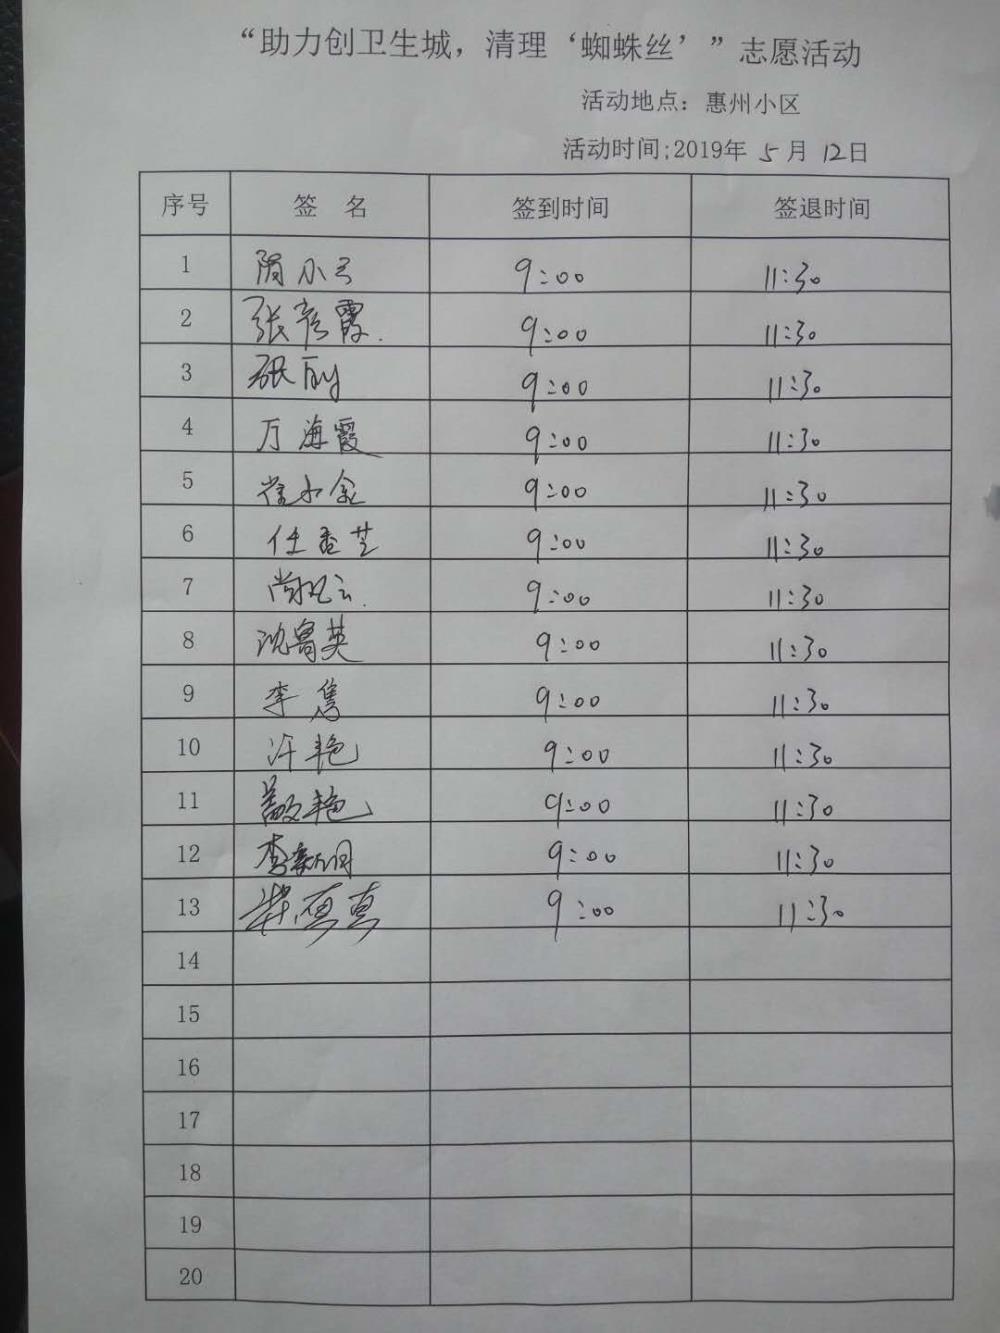 “助力创卫生城，清理‘蜘蛛丝’”志愿活动
活动地点：惠州小区
活动时间;2019年 5 月 12日
序号 签 名 签到时间 签退时间
1 隋小云 9:00 11:30
2 张彦霞. 9:00 11:30
3 张 9:00 11:30
4 万海霞 9:00 11:30
5 9:00 11:30
6 任香芝 9:00 11:30
7 尚 云. 9:00 11:30
8 沈鲁英 9:00 11:30
9 李隽 9:00 11:30
10 许艳 9:00 11:30
11 艳 9:00 11:30
12 李 9:00 11:30
13 真真 9:00 11:30
14
15
16
17
18
19
20